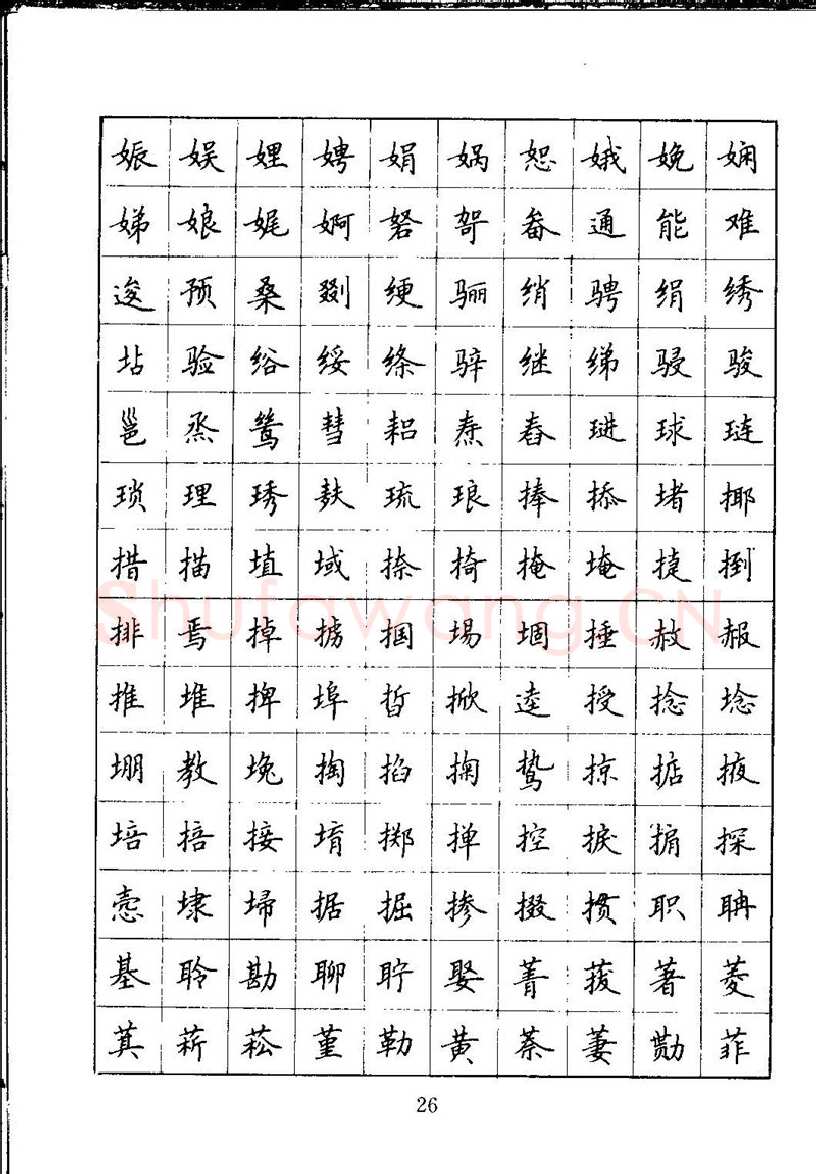 娠娱娌娉娟娲恕娥娩娴
娣娘娓婀砮哿畚通能难
逡预桑剟绠骊绡骋绢绣
验绤绥绦骍继绨骎骏
邕烝鸶彗耜焘舂琎球琏
琐理琇麸琉琅捧掭堵揶
措描埴域捺掎掩埯捷捯
排焉掉掳掴埸堌捶赦赧
推堆捭埠晢掀逵授捻埝
堋教堍掏掐掬鸷掠掂掖
培掊接堉掷掸控捩掮探
悫埭埽据掘掺掇掼职聃
基聆勘聊聍娶菁菝著菱
萁菥菘堇勒黄萘萋勚菲
26
Shufawang.CN